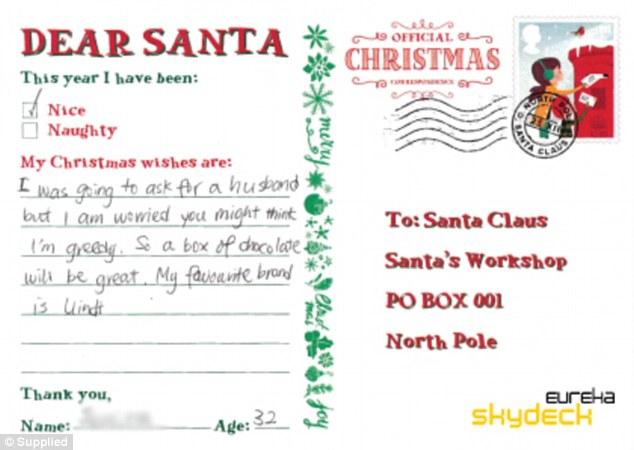 DEAR SANTA
This year I have been:
Nice
Naughty
My Christmas wishes are:
I was going to ask for a husband
but I am worried you might think
I'm greedy. So a box of chocolate
will be great. My favourite brand
is Lindt
Thank you,
Name:
Age: 32
merry
Christmas
joy
OFFICIAL
CHRISTMAS
CORRESPONDENCE
NORTH POLE
SANTA CLAUS
To: Santa Claus
Santa's Workshop
PO BOX 001
North Pole
eureka
skydeck
© Supplied